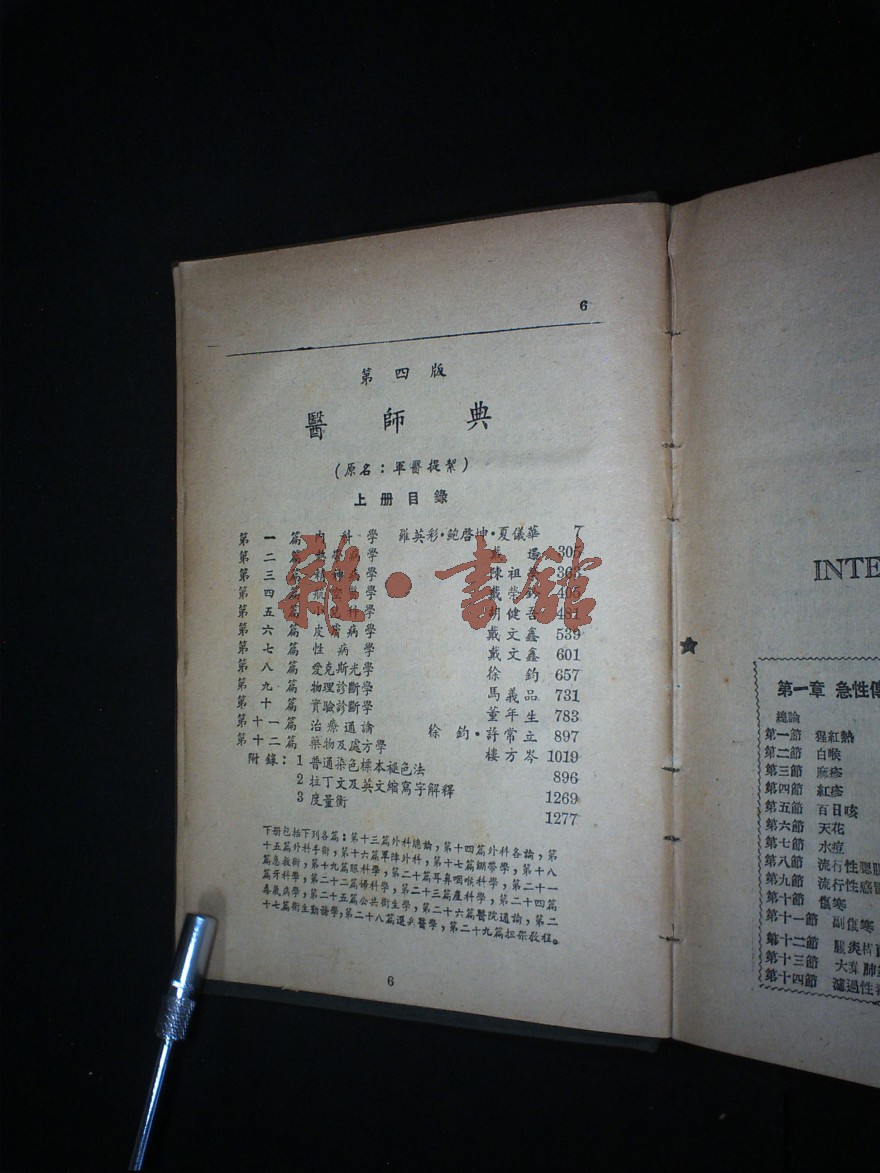 6
第四版
醫師典
(原名:軍醫提絜)
上册目錄
第一篇 內科學 羅英彩·鮑啓坤·夏儀華 7
第二篇 學 戴 305
第三篇 精神病學 陳祖
第四篇 航空醫學 戴榮鈐 405
第五篇 小兒科學 胡健吾 481
第六篇 皮膚病學 戴文鑫 539
第七篇 性病學 戴文鑫 601
第八篇 愛克斯光學 徐鈞 657
第九篇 物理診斷學 馬義品 731
第十篇 實驗診斷學 董年生 783
第十一篇 治療通論 徐鈞·許常立 897
第十二篇 藥物及處方學 樓方岑 1019
附錄:1 普通染色標本褪色法 896
2 拉丁文及英文縮寫字解釋 1269
3 度量衡 1277
下册包括下列各篇:第十三篇外科總論,第十四篇外科各論,第
十五篇外科手術,第十六篇軍陣外科,第十七篇綳帶學,第十八
篇急救術,第十九篇眼科學,第二十篇耳鼻咽喉科學,第二十一
篇牙科學,第二十二篇婦科學,第二十三篇產科學,第二十四篇
毒氣病學,第二十五篇公共衛生學,第二十六篇醫院通論,第二
十七篇衛生勤務學,第二十八篇選兵醫學,第二十九篇担架教程。
6
雜·書館
INTE
第一章 急性傳
總論
第一節 猩紅熱
第二節 白喉
第三節 麻疹
第四節 紅疹
第五節 百日咳
第六節 天花
第七節 水痘
第八節 流行性腮腺
第九節 流行性感冒
第十節 傷寒
第十一節 副傷寒
第十二節 腸炎桿
第十三節 大葉肺
第十四節 濾過性